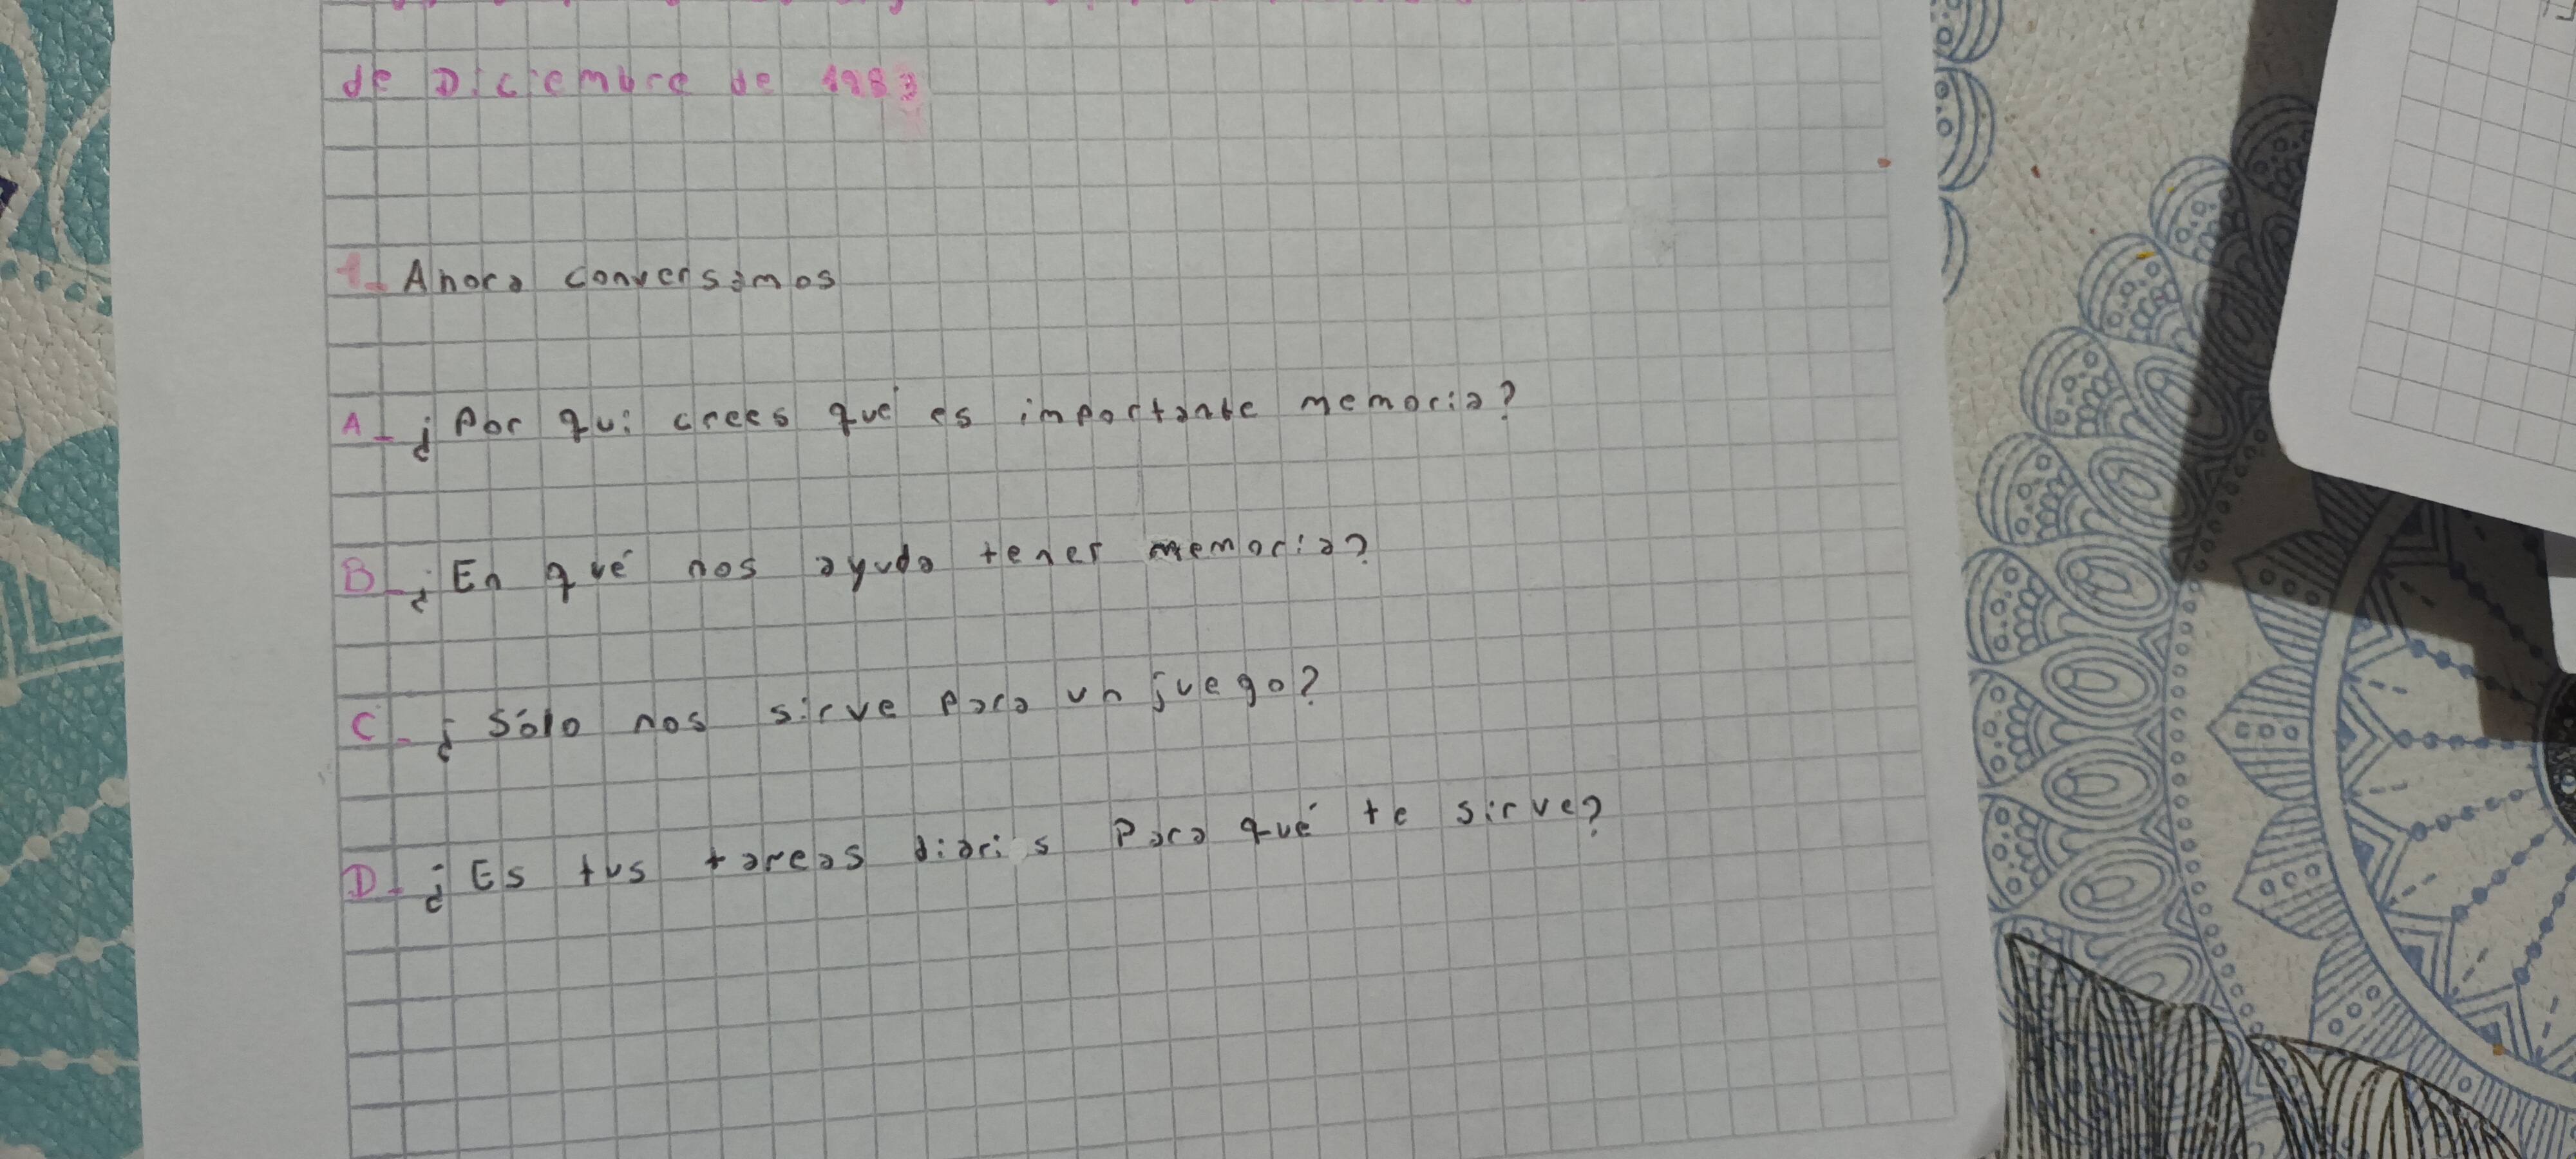 de Diciembre de 1983
1- Ahora conversamos
A- ¿Por qui crees qué es importante memoria?
B- ¿En qué nos ayuda tener memoria?
C- ¿Sólo nos sirve para un juego?
D- ¿Es tus tareas diari s Para qué te sirve?